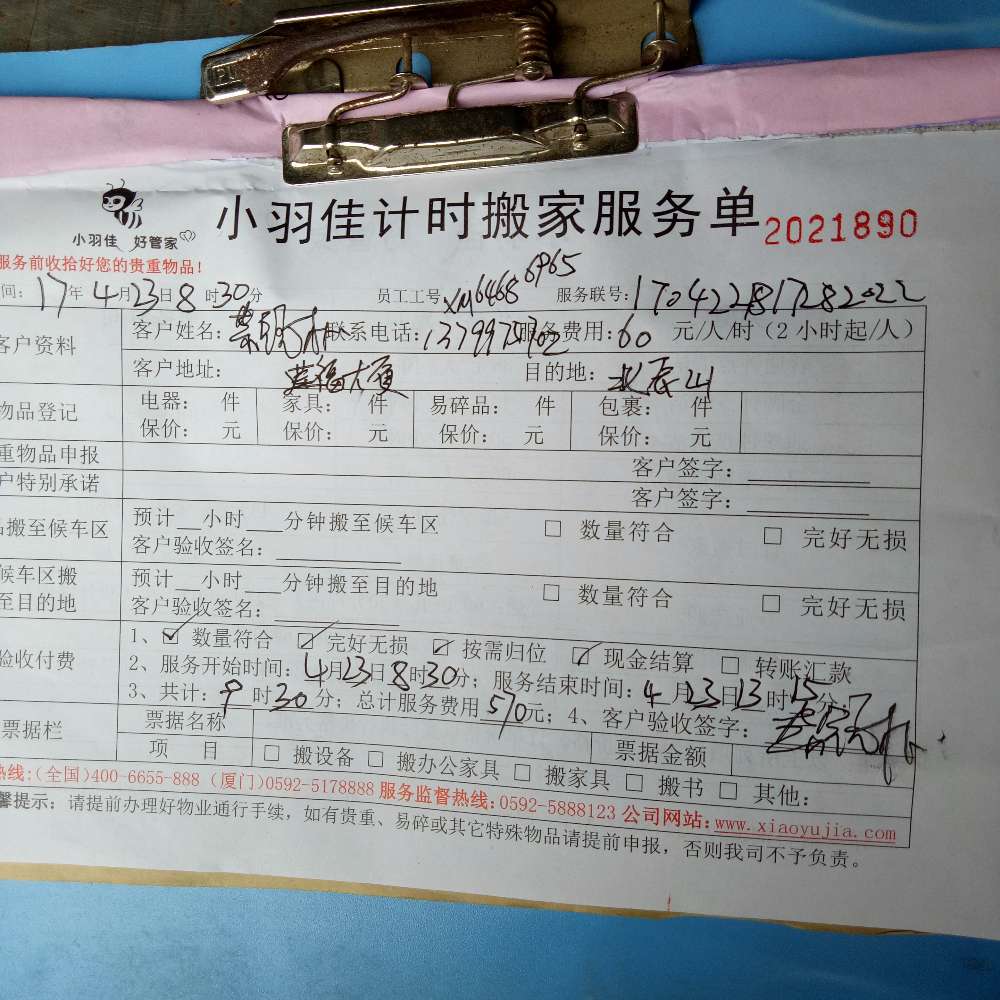 小羽佳 好管家
小羽佳计时搬家服务单 2021890
服务前收拾好您的贵重物品！
间：17年4月23日8时30分 员工工号 XM6468 6965 服务联号：170422817282022
客户资料 客户姓名： 联系电话： 服务费用：60 元/人/时（2小时起/人）
客户地址： 大厦 目的地：北辰山
物品登记 电器： 件 家具： 件 易碎品： 件 包裹： 件
保价： 元 保价： 元 保价： 元 保价： 元
重物品申报 客户签字：
户特别承诺 客户签字：
品搬至候车区 预计__小时___分钟搬至候车区 □ 数量符合 □ 完好无损
客户验收签名：
候车区搬至目的地 预计__小时___分钟搬至目的地 □ 数量符合 □ 完好无损
客户验收签名：
验收付费 1、☑ 数量符合 ☑ 完好无损 ☑ 按需归位 ☑ 现金结算 □ 转账汇款
2、服务开始时间：4月23日8时30分；服务结束时间：4月23日13时15分
3、共计：9时30分；总计服务费用570元；4、客户验收签字：
票据栏 票据名称 票据金额
项 目 □ 搬设备 □ 搬办公家具 □ 搬家具 □ 搬书 □ 其他：
热线:(全国)400-6655-888 (厦门)0592-5178888 服务监督热线:0592-5888123 公司网站:www.xiaoyujia.com
馨提示：请提前办理好物业通行手续，如有贵重、易碎或其它特殊物品请提前申报，否则我司不予负责。